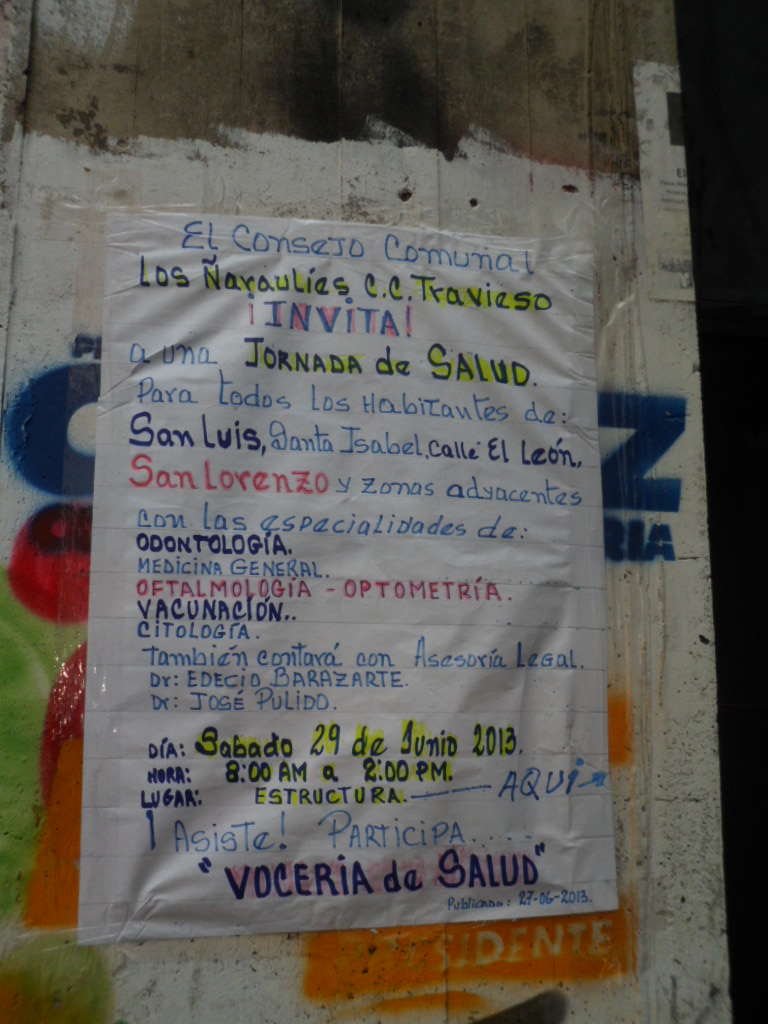 El Consejo Comunal
Los Ñaraulíes C.C. Travieso
¡INVITA!
a una JORNADA de SALUD.
Para todos los Habitantes de:
San Luis, Santa Isabel, Calle El León,
San Lorenzo y zonas adyacentes
con las especialidades de:
ODONTOLOGÍA.
MEDICINA GENERAL.
OFTALMOLOGÍA - OPTOMETRÍA.
VACUNACIÓN..
CITOLOGÍA.
También contará con Asesoría Legal.
Dr: EDECIO BARAZARTE.
Dr: JOSÉ PULIDO.
DÍA: Sabado 29 de Junio 2013.
HORA: 8:00 AM a 2:00 PM.
LUGAR: ESTRUCTURA. AQUÍ
¡Asiste! Participa.....
"VOCERIA de SALUD"
Publicado: 27-06-2013.
Z
RIA
SIDENTE